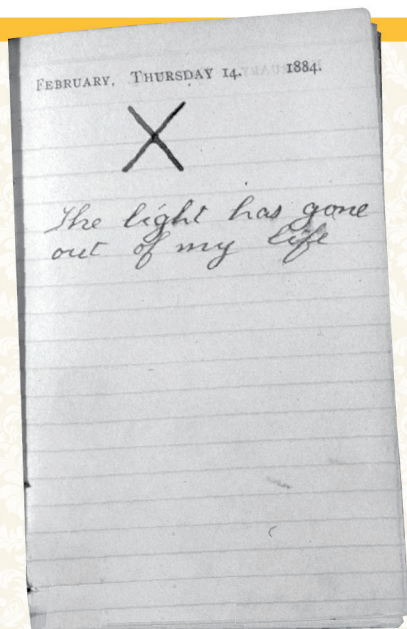 FEBRUARY, THURSDAY 14. 1884.
X
The light has gone
out of my life